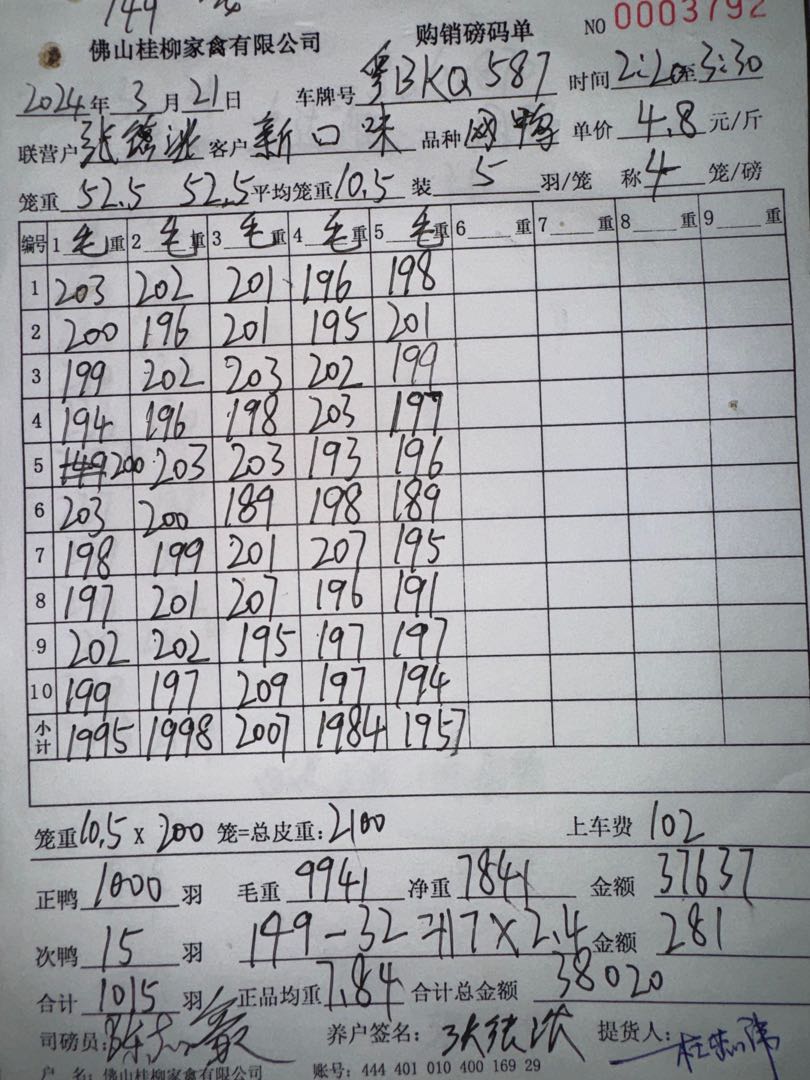 149
佛山桂柳家禽有限公司 购销磅码单 NO 0003792
2024年 3月21日 车牌号 粤BKQ587 时间 2:20至3:30
联营户 张 客户 新口味 品种 网鸭 单价 4.8 元/斤
笼重 52.5 52.5 平均笼重 10.5 装 5 羽/笼 称 4 笼/磅
编号 1 毛 重 2 毛 重 3 毛 重 4 毛 重 5 毛 重 6 重 7 重 8 重 9 重
1 203 202 201 196 198
2 200 196 201 195 201
3 199 202 203 202 199
4 194 196 198 203 197
5 149 200 203 203 193 196
6 203 200 189 198 189
7 198 199 201 207 195
8 197 201 207 196 191
9 202 202 195 197 197
10 199 197 209 197 194
小计 1995 1998 2007 1984 1957
笼重 10.5 × 200 笼=总皮重: 2100 上车费 102
正鸭 1000 羽 毛重 9941 净重 7841 金额 37637
次鸭 15 羽 149-32=117×2.4 金额 281
合计 1015 羽 正品均重 7.84 合计总金额 38020
司磅员: 陈 养户签名: 张 提货人:
户 名: 佛山桂柳家禽有限公司 账号: 444 401 010 400 169 29